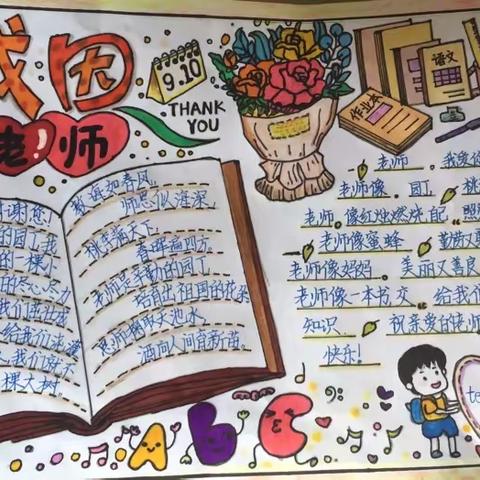 感恩
老师
9.10
THANK
YOU
语文
作业本
教诲如春风,
师恩似海深。
桃李满天下,
春晖遍四方。
老师是辛勤的园丁,
培育出祖国的花朵
恩师掬取天池水,
洒向人间育新苗。
谢您!
的园丁,我
的一棵小
的尽心尽力
我们茁壮成
给我们浇灌
我们就不
棵大树。
老师,我爱
老师像园丁,桃
老师像红烛燃烧自己,照
老师像蜜蜂,勤劳又
老师像妈妈,美丽又善良
老师像一本书,交给我们
知识,祝亲爱的老师
快乐!
A b C
te